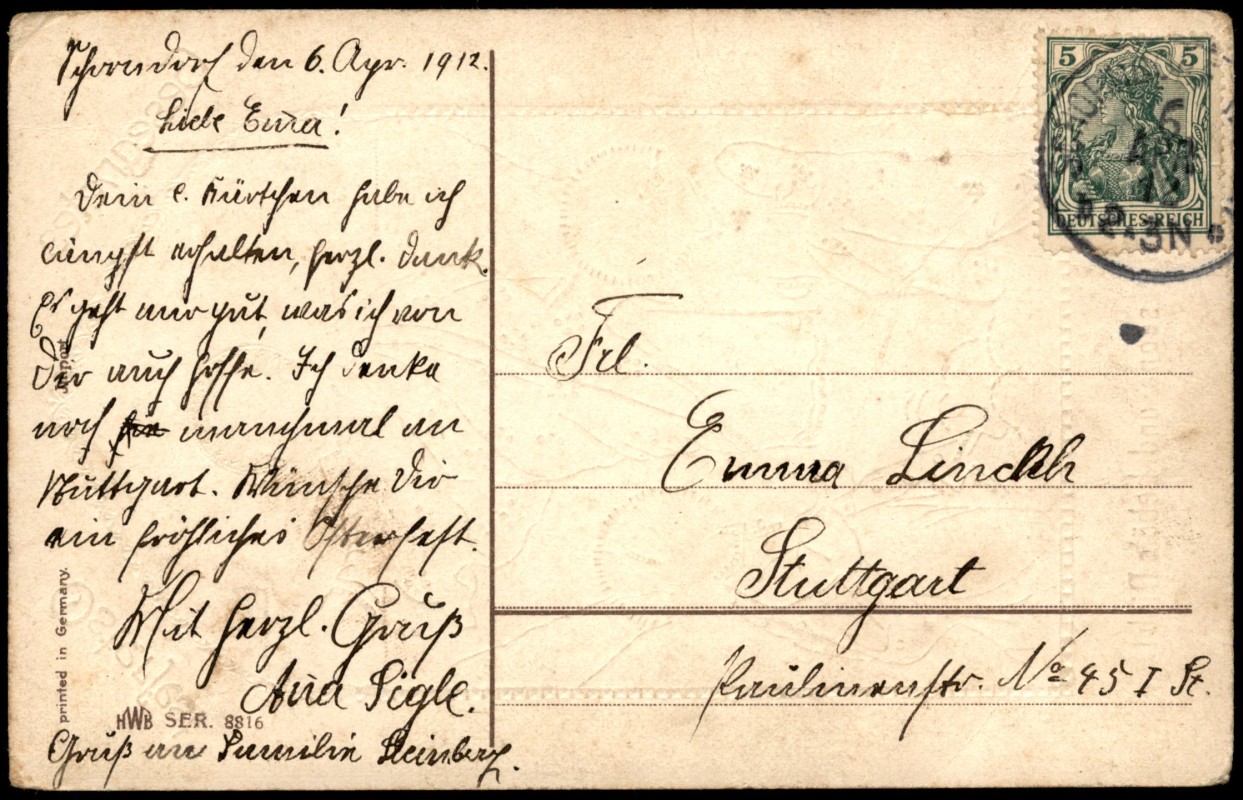 Schorndorf den 6. Apr. 1912.
Liebe Em̄a!
Dein l. Kärtchen habe ich
kämpft erhalten, herzl. Dank.
Es geht mir gut, was ich von
Dir auch hoffe. Ich denke
noch manchmal an
Stuttgart. Wünsche Dir
ein fröhliches Osterfest.
Mit herzl. Gruß
Anna Sigle.
Gruß an Familie Steinberg.
printed in Germany.
Import
HWB SER. 8816
5 5
DEUTSCHES REICH
6
APR
12
2-3N
Frl.
Emma Linckh
Stuttgart
Paulinenstr. No 45 I St.